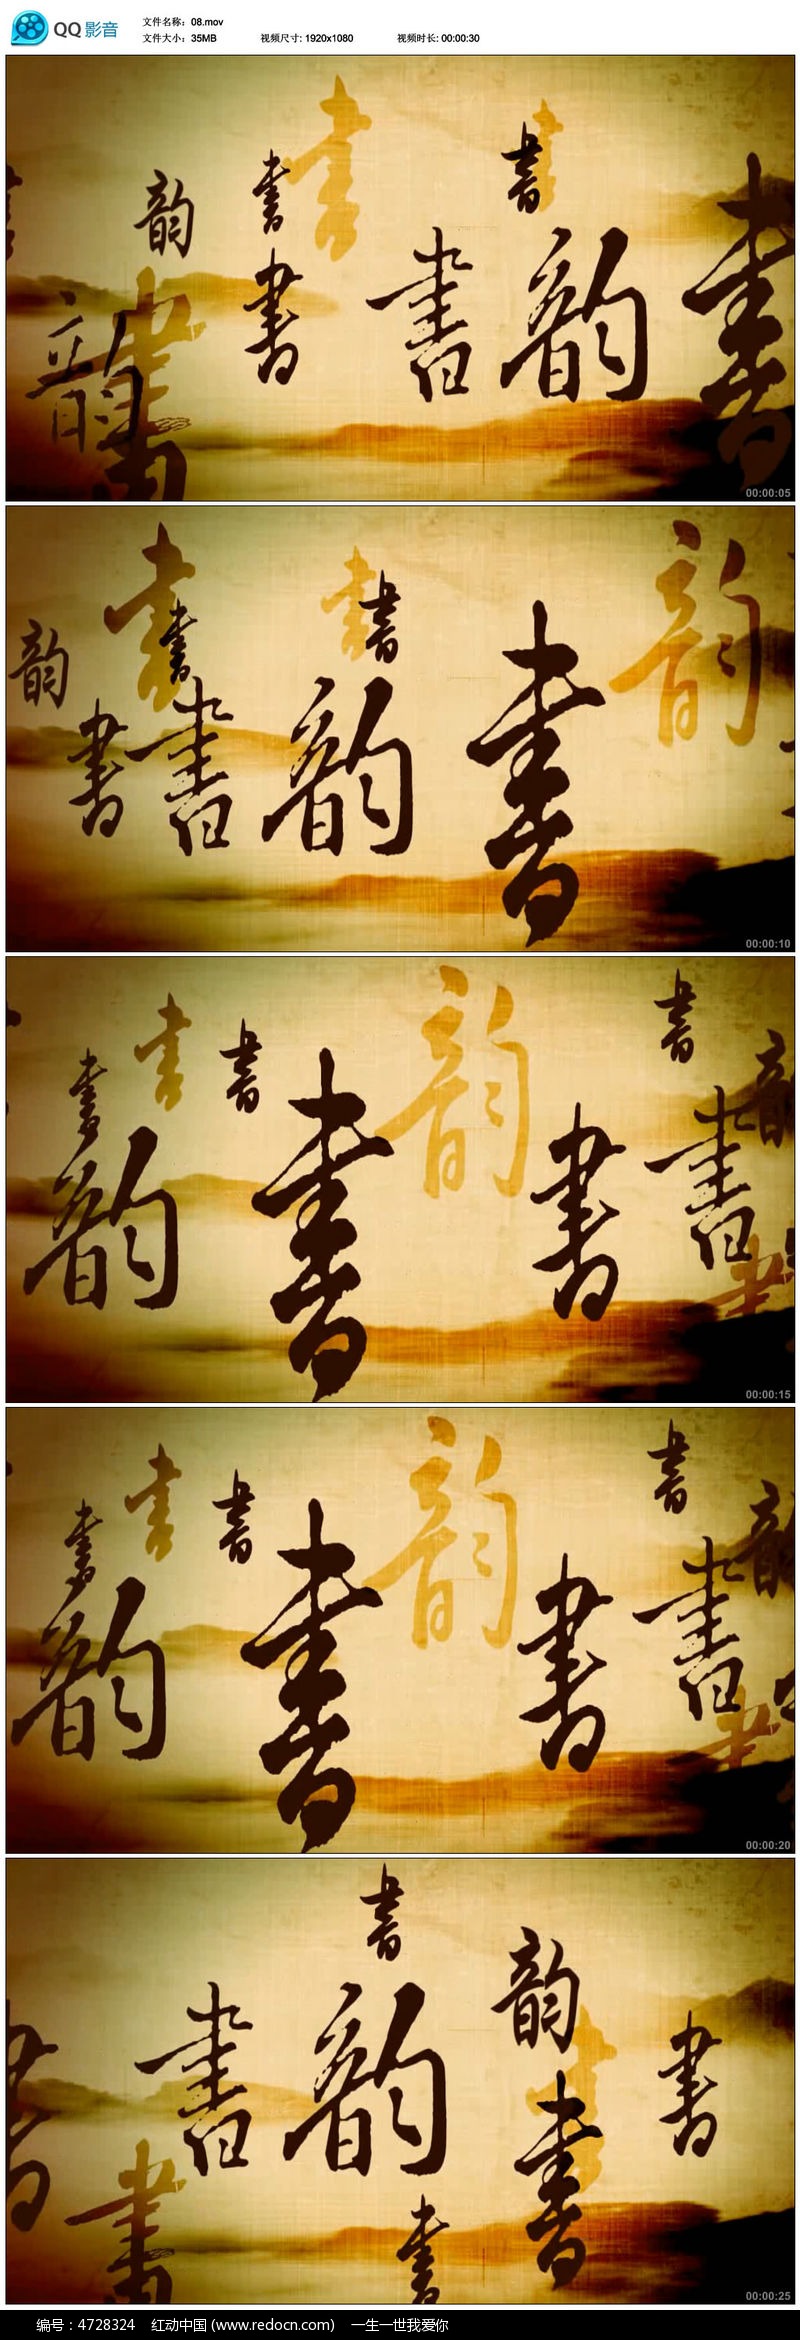 QQ 影音
文件名称: 08.mov
文件大小: 35MB 视频尺寸: 1920x1080 视频时长: 00:00:30
書
書
書
韵
書
書
書
韵
書
韵
書
00:00:05
韵
書
書
書
書
韵
書
書
韵
書
00:00:10
韵
書
書
書
書
書
韵
書
韵
書
書
書
00:00:15
韵
書
書
書
書
書
韵
書
韵
書
書
書
00:00:20
書
韵
書
韵
書
書
書
書
書
書
00:00:25
编号: 4728324 红动中国 (www.redocn.com) 一生一世我爱你